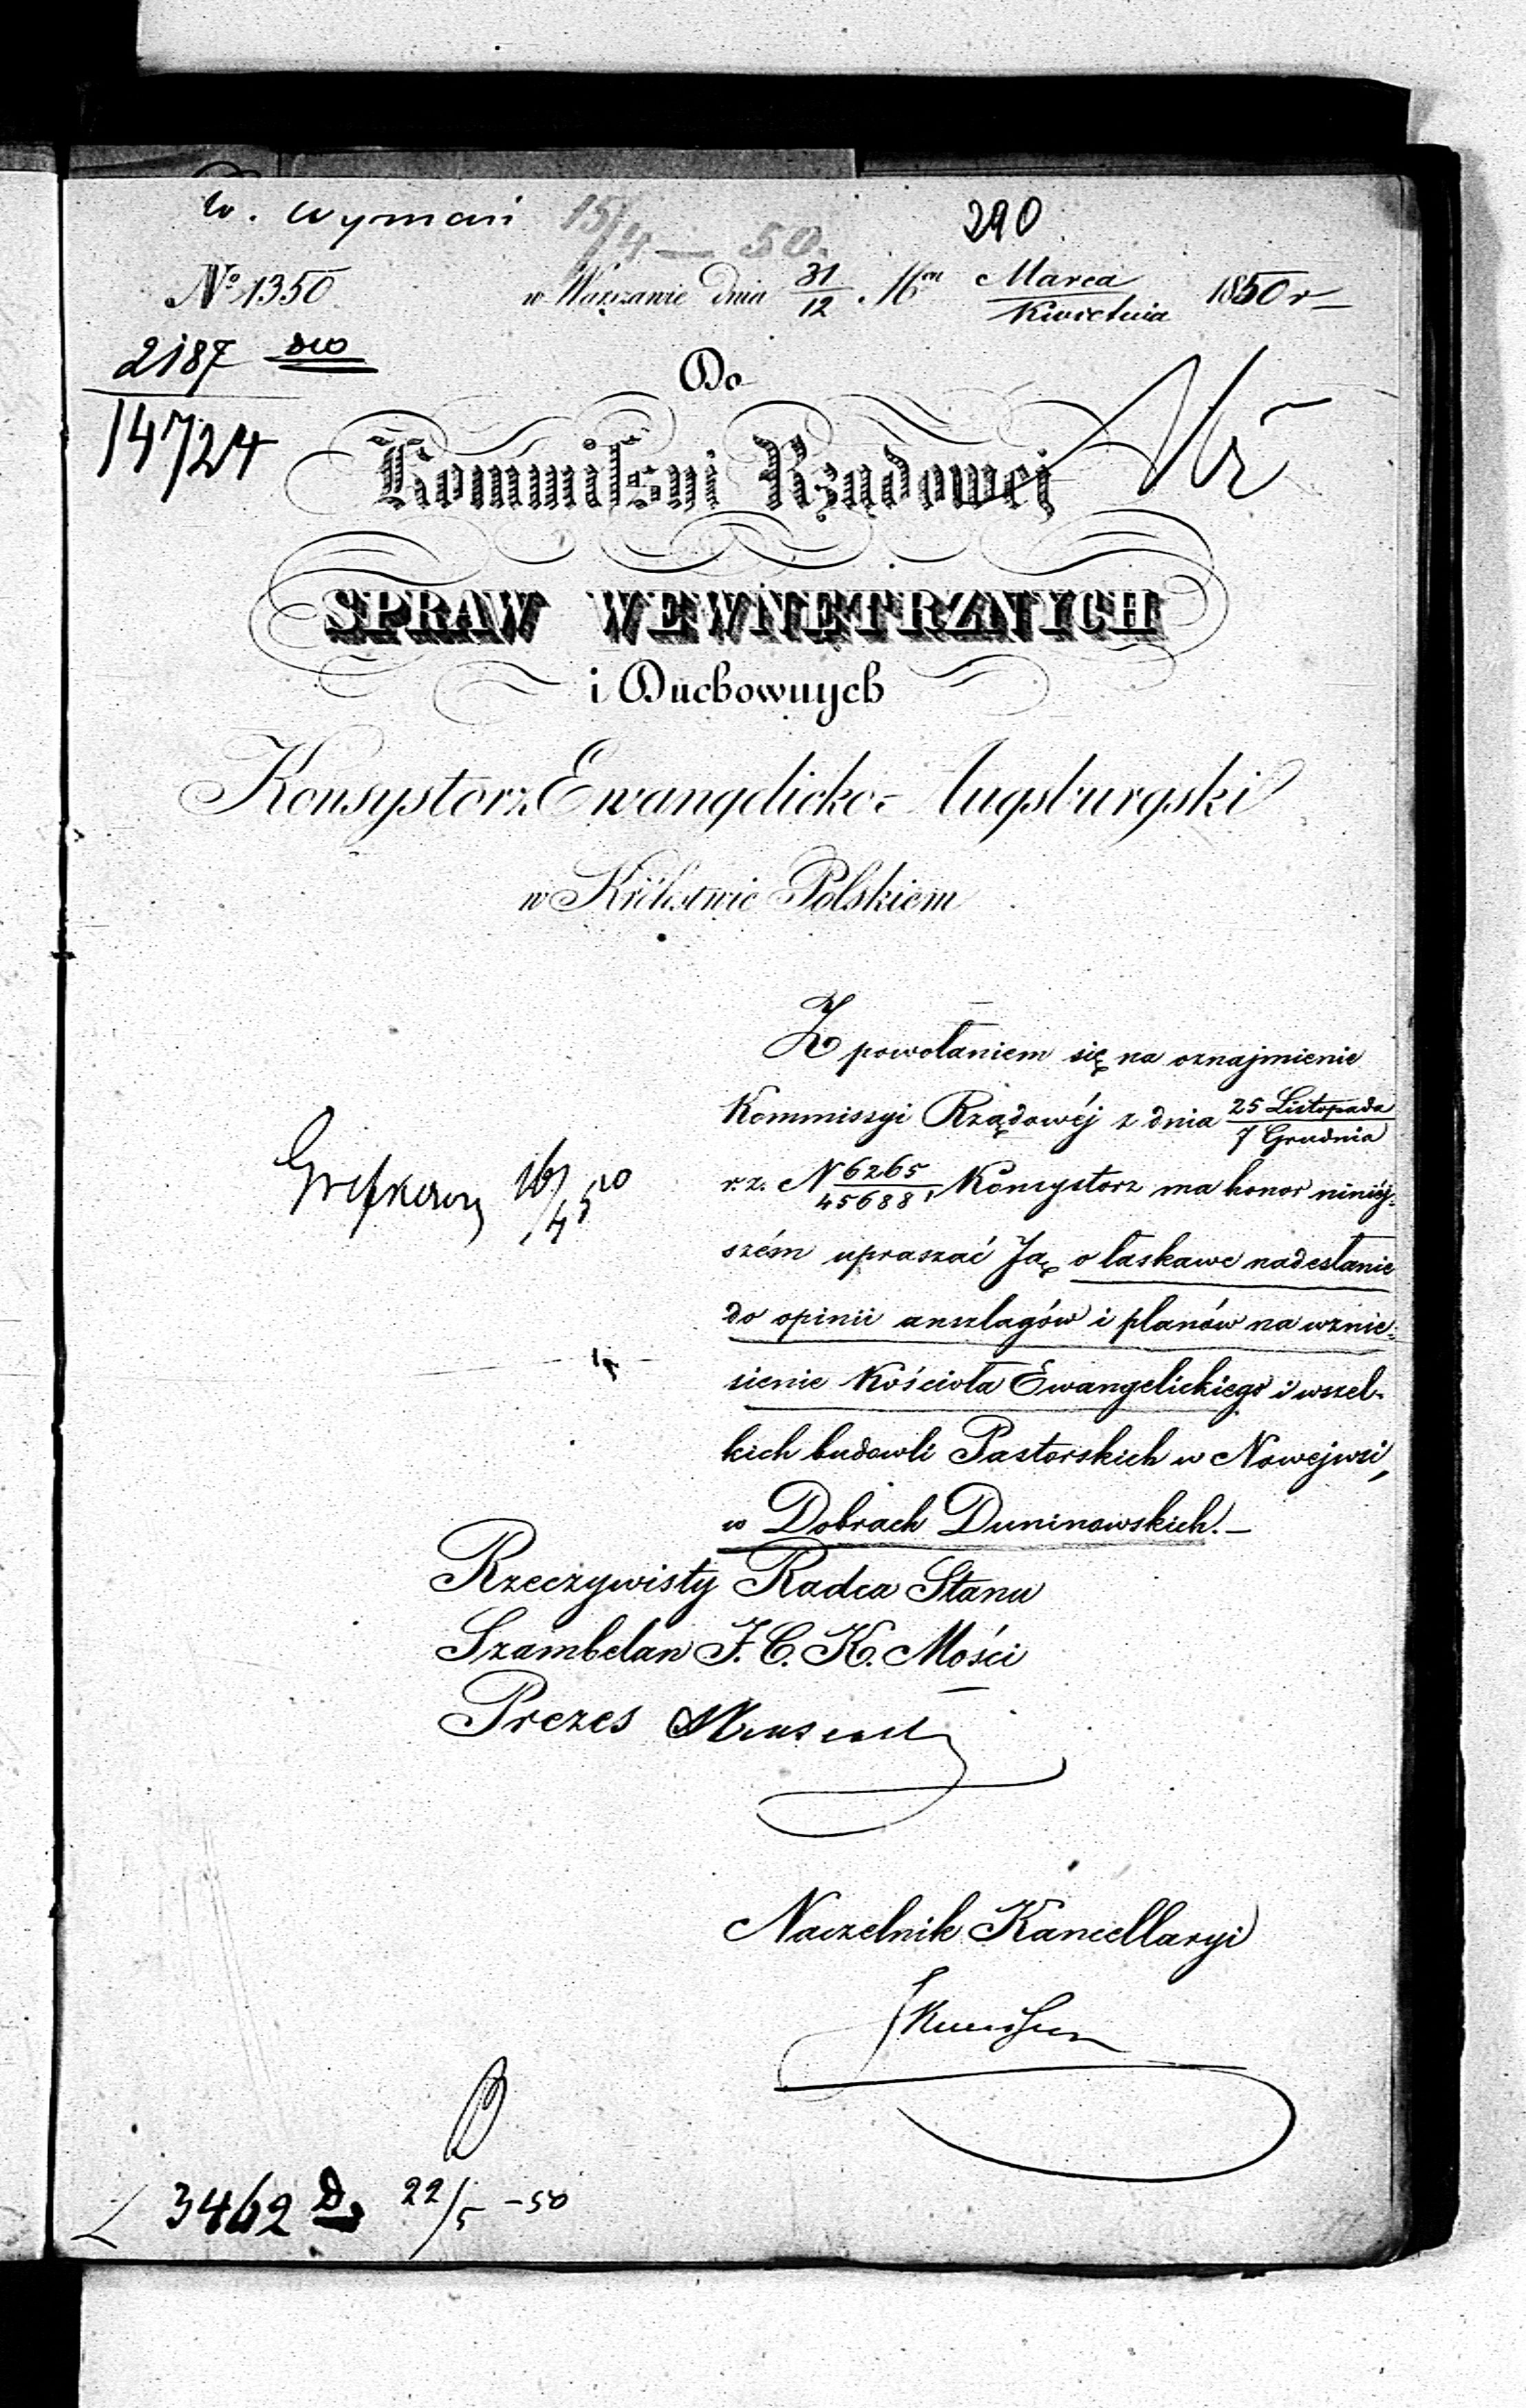 W. Wyznań 15/4 — 50. 290
No 1350 w Warszawie dnia 31/12 Mca Marca/Kwietnia 1850 r
2187
14724
Do
Kommissyi Rządowej
SPRAW WEWNĘTRZNYCH
i Duchownych
Konsystorz Ewangelicko-Augsburgski
w Królestwie Polskiem
Z powołaniem się na oznajmienie
Kommissyi Rządowéj z dnia 25 Listopada/7 Grudnia
r. z. N 6265/45688, Konsystorz ma honor niniéj-
szém upraszać Ją o łaskawe nadesłanie
do opinii anszlagów i planów na wznie-
sienie Kościoła Ewangelickiego i wszel-
kich budowli Pastorskich w Nowejwsi,
w Dobrach Duninowskich.—
16/4 50
Rzeczywisty Radca Stanu
Szambelan J. C. K. Mości
Prezes
Naczelnik Kancellaryi
3462 D 22/5 -50